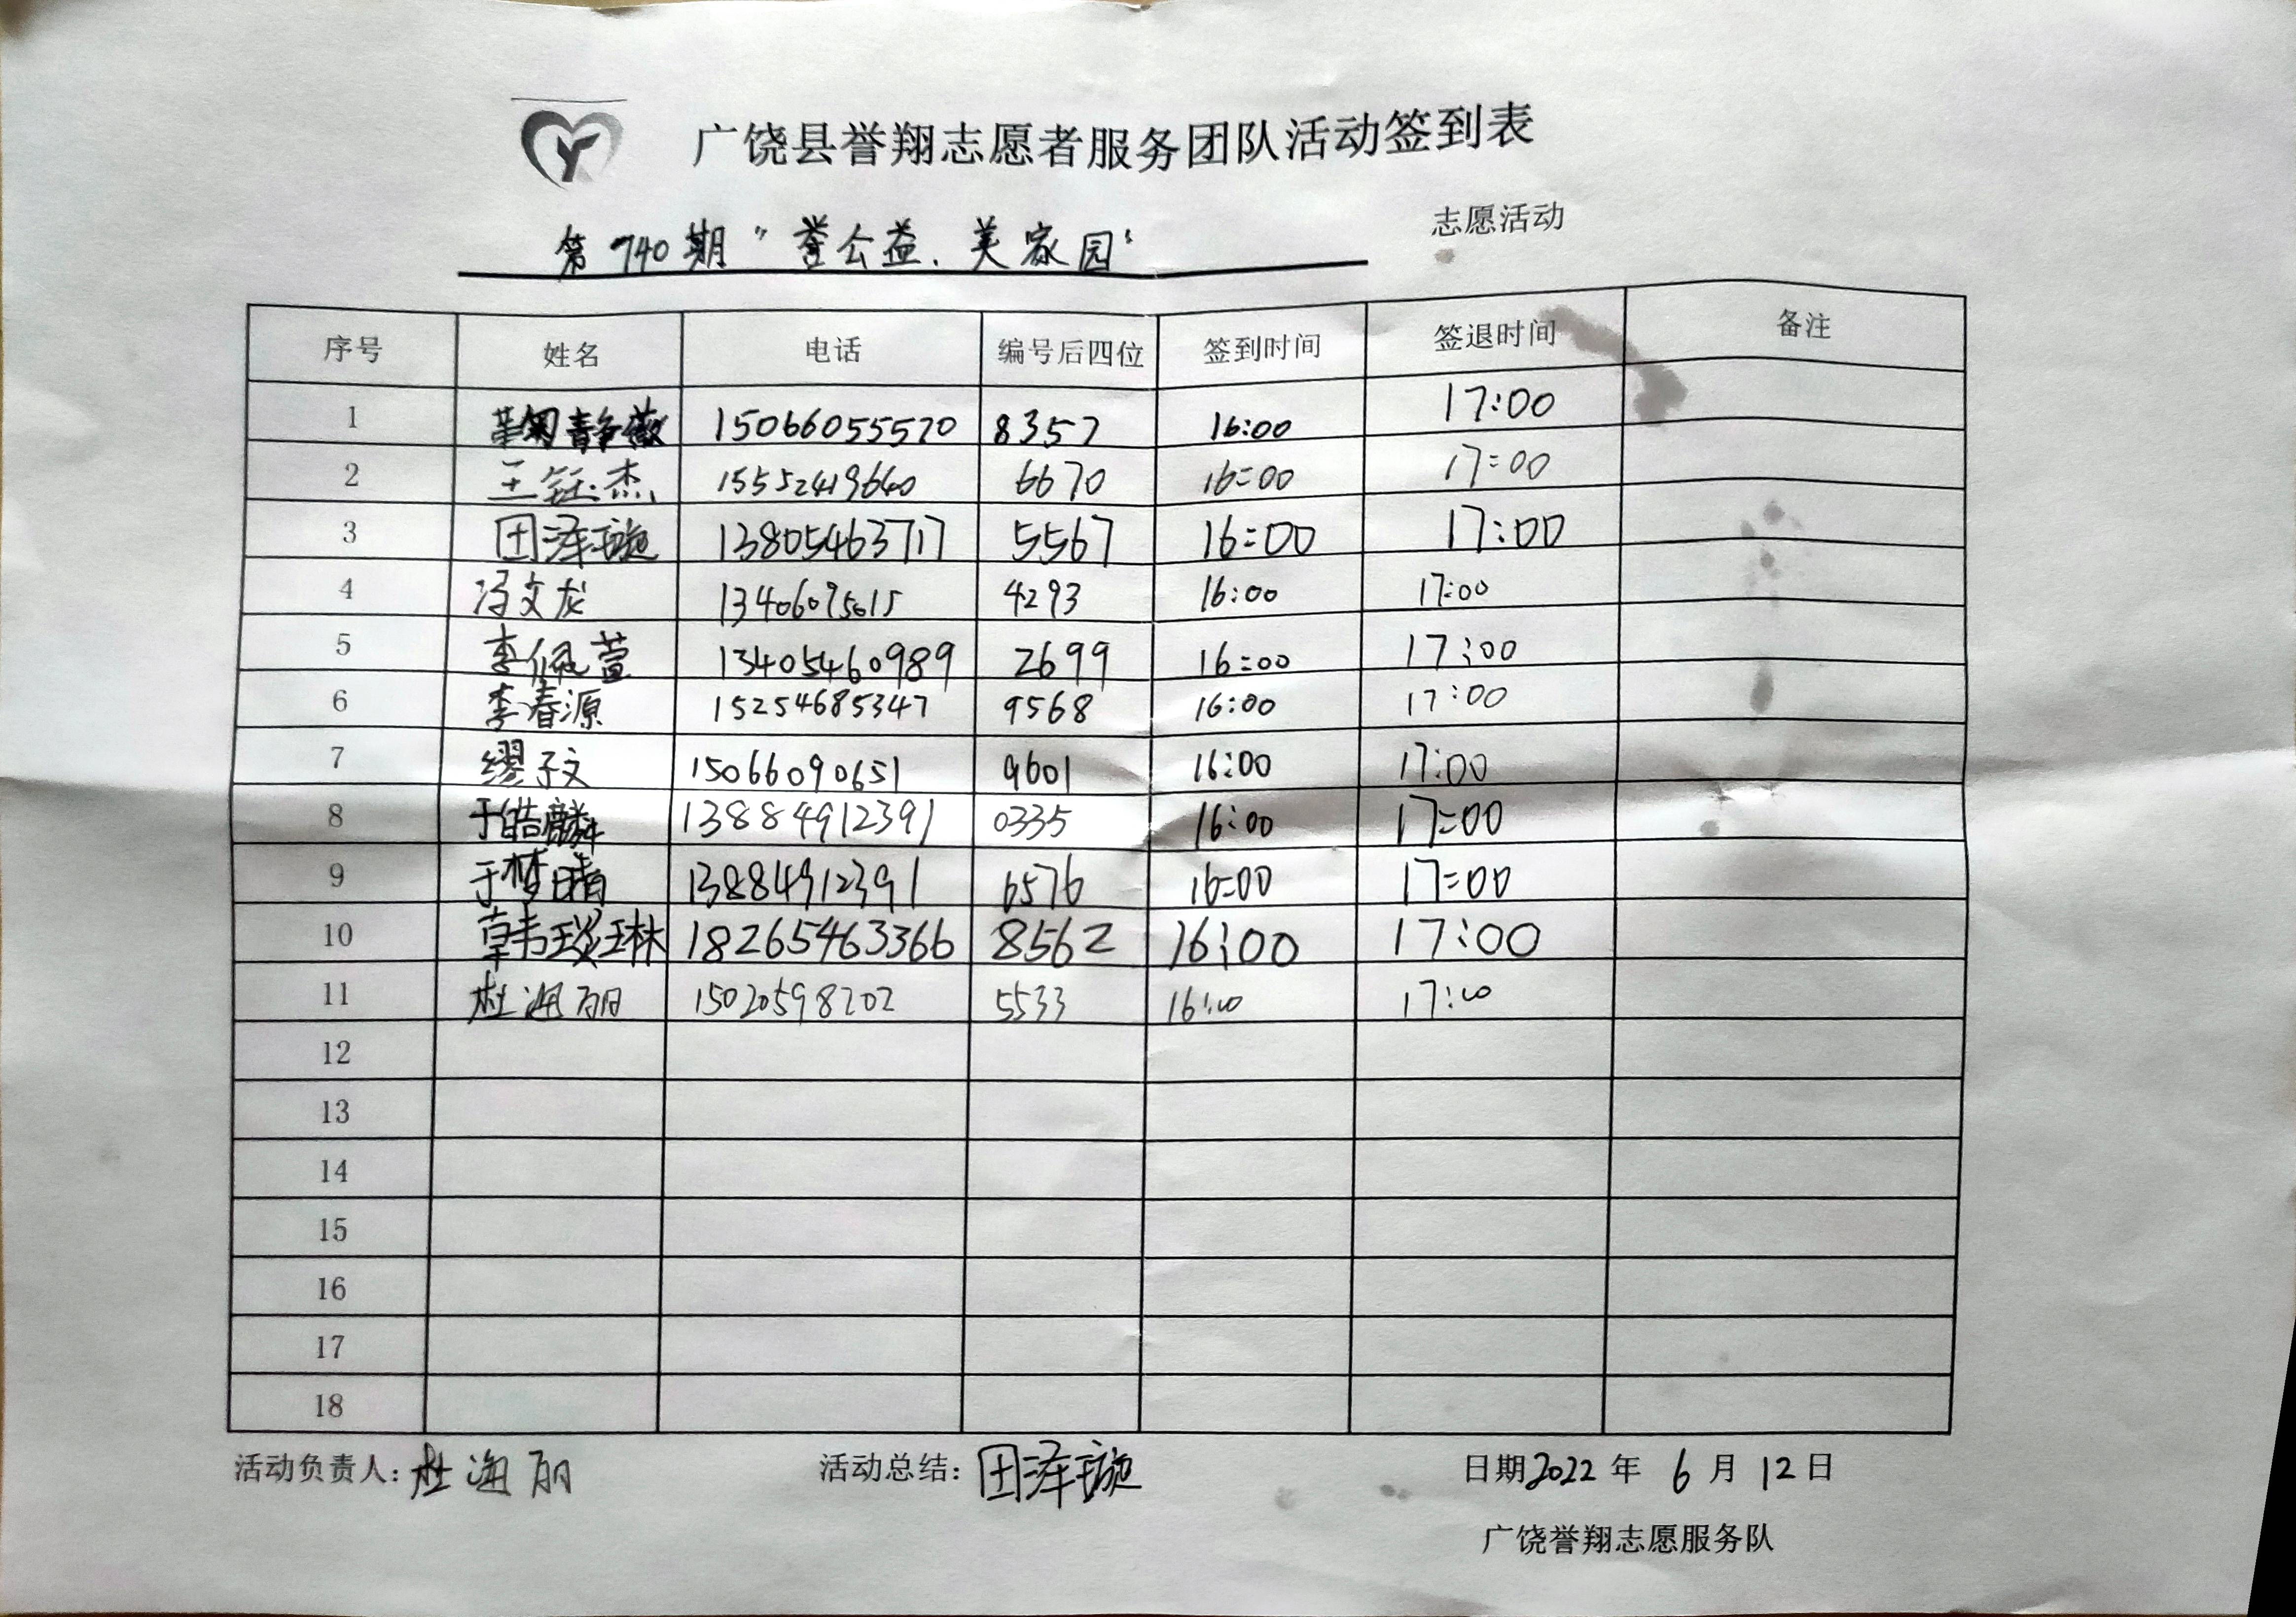 广饶县誉翔志愿者服务团队活动签到表
第740期"誉公益、美家园" 志愿活动
序号 姓名 电话 编号后四位 签到时间 签退时间 备注
1 静薇 15066055520 8357 16:00 17:00
2 王钰杰 15552419640 6670 16:00 17:00
3 田泽璇 13805463717 5567 16:00 17:00
4 冯文龙 13406095015 4293 16:00 17:00
5 李佩萱 13405460989 2699 16:00 17:00
6 李春源 15254685347 9568 16:00 17:00
7 缪子文 15066090651 9601 16:00 17:00
8 于皓麟 13884912391 0335 16:00 17:00
9 于梦晴 13884912391 6576 16:00 17:00
10 韩琰琳 18265463366 8562 16:00 17:00
11 杜海丽 15020598202 5533 16:00 17:00
12
13
14
15
16
17
18
活动负责人：杜海丽 活动总结：田泽璇 日期2022年 6月12日
广饶誉翔志愿服务队